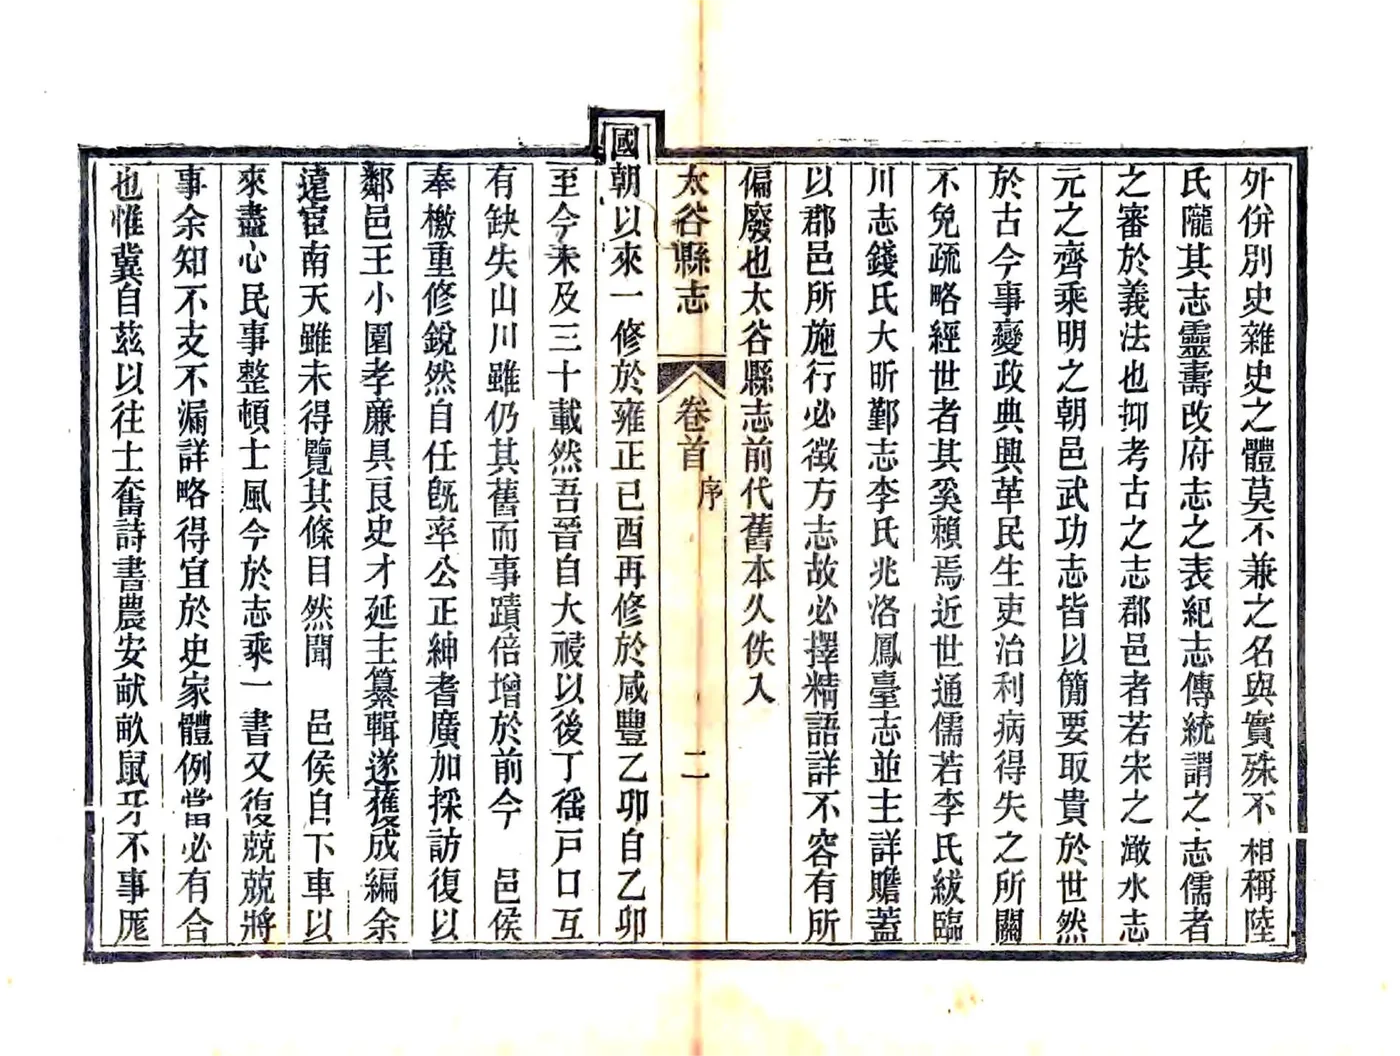 外併別史雜史之體莫不兼之名與實殊不相稱陸
氏隴其志靈壽改府志之表紀志傳統謂之志儒者
之審於義法也抑考古之志郡邑者若宋之澉水志
元之齊乘明之朝邑武功志皆以簡要取貴於世然
於古今事變政典興革民生吏治利病得失之所關
不免疏略經世者其奚賴焉近世通儒若李氏紱臨
川志錢氏大昕鄞志李氏兆洛鳳臺志並主詳贍蓋
以郡邑所施行必徵方志故必擇精語詳不容有所
偏廢也太谷縣志前代舊本久佚入
太谷縣志 卷首 序 二
國朝以來一修於雍正已酉再修於咸豐乙卯自乙卯
至今未及三十載然吾晉自大祲以後丁徭戶口互
有缺失山川雖仍其舊而事蹟倍增於前今 邑侯
奉檄重修銳然自任旣率公正紳耆廣加採訪復以
鄰邑王小圃孝廉具良史才延主纂輯遂獲成編余
遠宦南天雖未得覽其條目然聞 邑侯自下車以
來盡心民事整頓士風今於志乘一書又復兢兢將
事余知不支不漏詳略得宜於史家體例當必有合
也惟冀自茲以往士奮詩書農安畎畝鼠牙不事厖